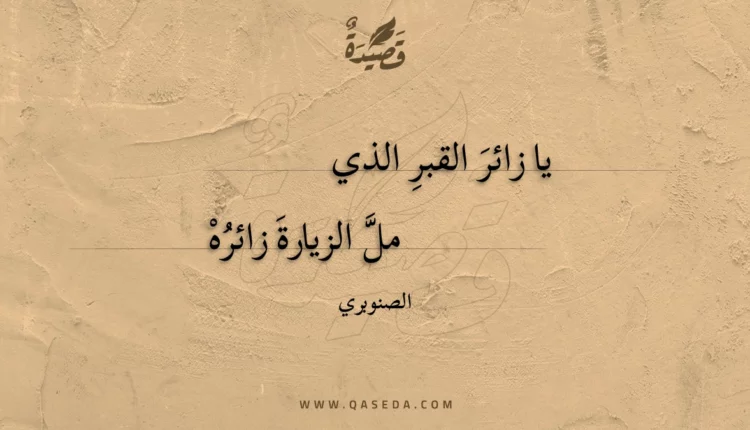 قَصِيْدَةٌ
يا زائرَ القبرِ الذي
ملَّ الزيارةَ زائرُهْ
الصنوبري
WWW.QASEDA.COM